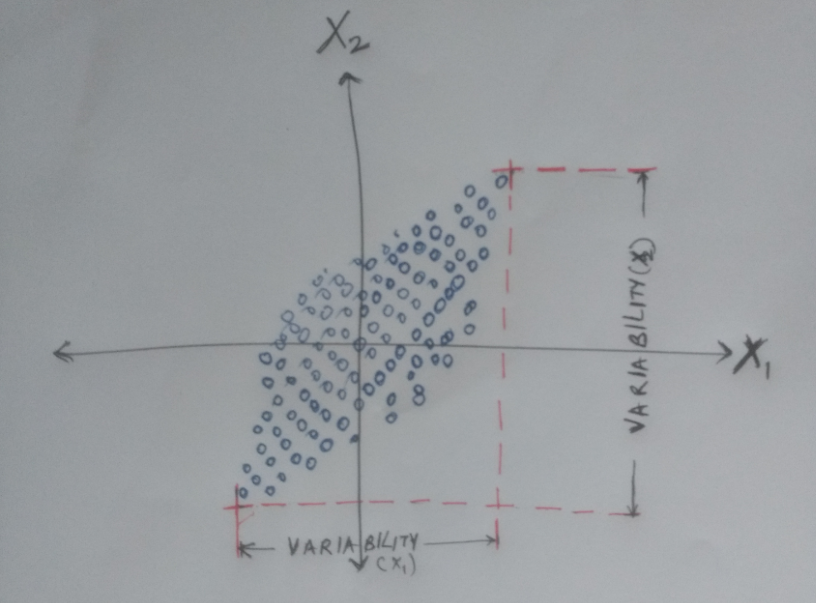 X2
VARIABILITY(X2)
X1
VARIABILITY
(X1)